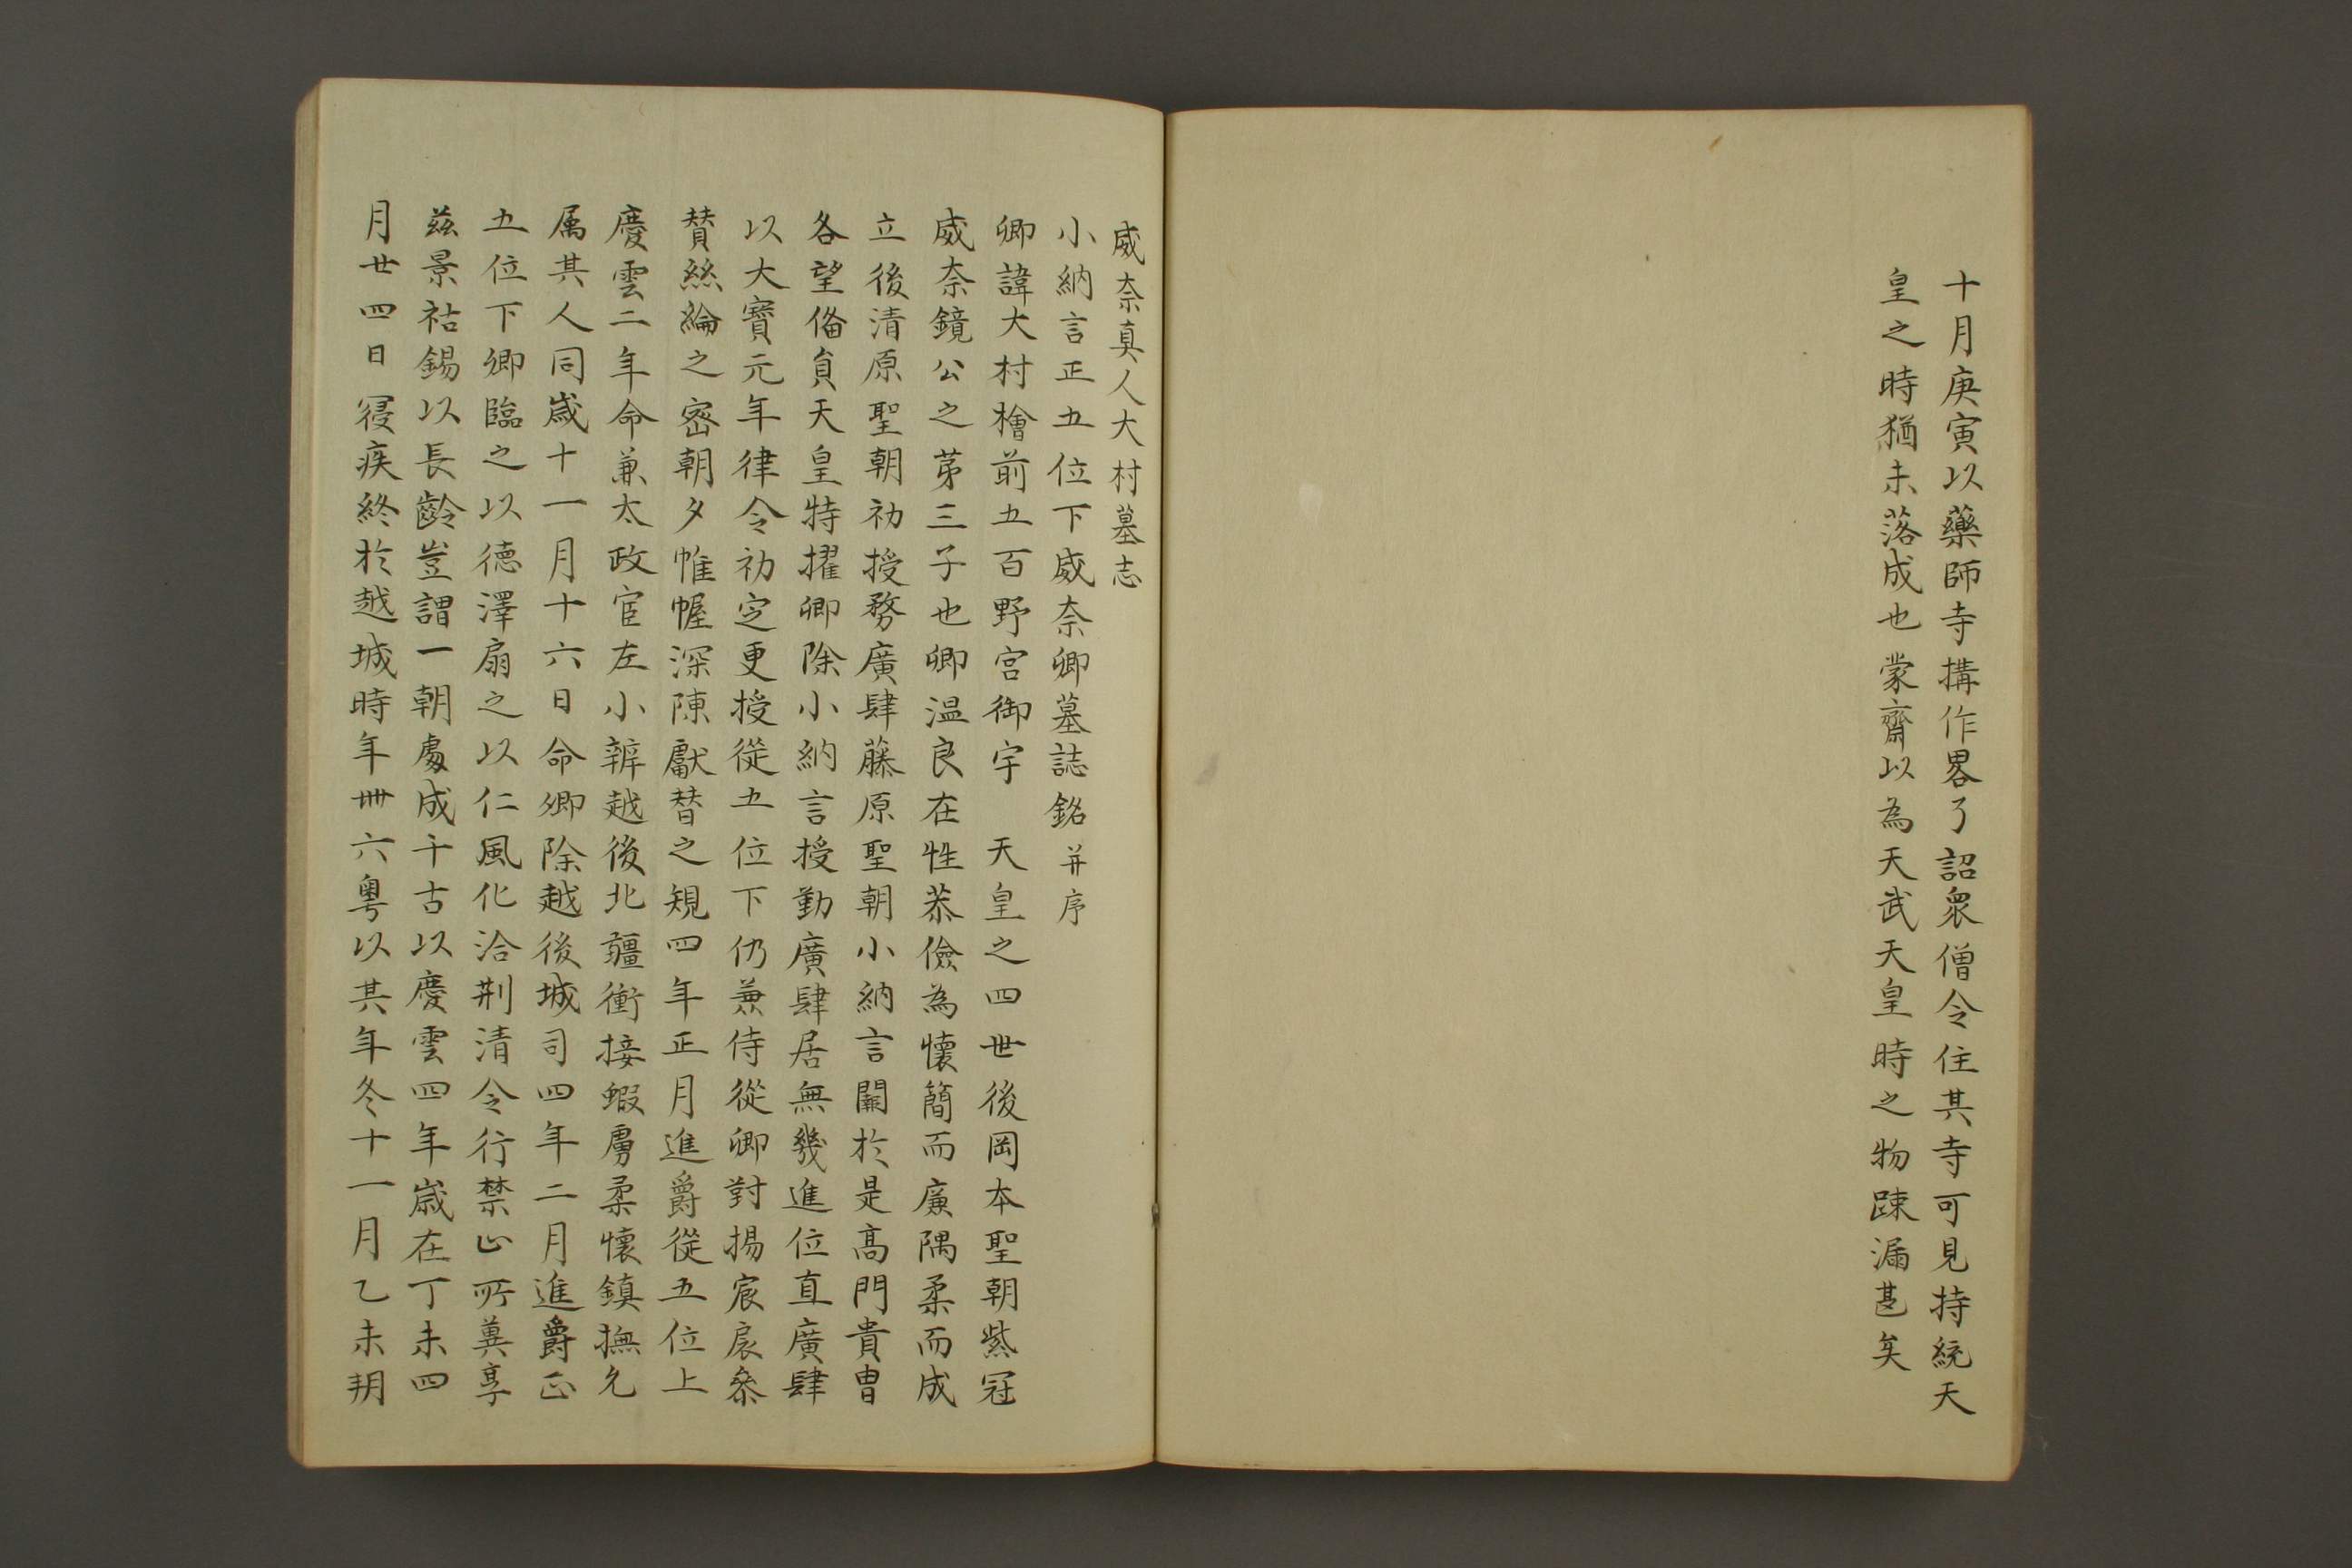 十月庚寅以藥師寺搆作畧了詔衆僧令住其寺可見持統天
皇之時猶未落成也蒙齋以為天武天皇時之物踈漏甚矣
威奈真人大村墓志
小納言正五位下威奈卿墓誌銘并序
卿諱大村檜前五百野宮御宇　天皇之四世後岡本聖朝紫冠
威奈鏡公之苐三子也卿温良在性恭儉為懷簡而廉隅柔而成
立後清原聖朝初授務廣肆藤原聖朝小納言闕於是髙門貴曹
各望俻員天皇特擢卿除小納言授勤廣肆居無幾進位直廣肆
以大寶元年律令初定更授從五位下仍兼侍從卿對揚宸扆叅
賛絲綸之宻朝夕帷幄深陳獻替之規四年正月進爵從五位上
慶雲二年命兼太政官左小辨越後北疆衝接蝦虜柔懷鎮撫允
属其人同嵗十一月十六日命卿除越後城司四年二月進爵正
五位下卿臨之以德澤扇之以仁風化洽刑清令行禁止所冀享
兹景祜錫以長齡豈謂一朝處成千古以慶雲四年嵗在丁未四
月廿四日寑疾終於越城時年卌六粤以其年冬十一月乙未朔